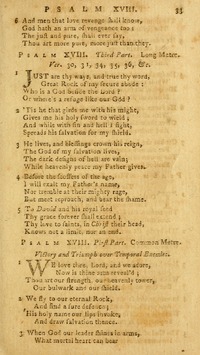 PSALM XVIII. 35
6 And men that love revenge shall know,
God hath an arm of vengeance too:
The just and pure, shall ever say,
Thou art more pure, more just than they.
PSALM XVIII. Third Part. Long Metre.
Ver. 30, 31, 34, 35, 36, &c.
1 JUST are thy ways, and true thy word,
Great Rock of my secure abode:
Who is a God beside the Lord?
Or where's a refuge like our God?
2 'Tis he that girds me with his might,
Gives me his holy sword to wield;
And while with sin and hell I fight,
Spreads his salvation for my shield.
3 He lives, and blessings crown his reign,
The God of my salvation lives,
The dark designs of hell are vain;
While heavenly peace my Father gives.
4 Before the scoffers of the age,
I will exalt my Father's name,
Nor tremble at their mighty rage,
But meet reproach, and bear the shame.
5 To David and his royal seed
Thy grace forever shall extend;
Thy love to saints, in Christ their head,
Knows not a limit, nor an end.
PSALM XVIII. First Part. Common Metre.
Victory and Triumph over Temporal Enemies.
1 WE love thee, Lord, and we adore,
Now is thine arm reveal'd;
Thou art our strength, our heavenly tower,
Our bulwark and our shield.
2 We fly to our eternal Rock,
And find a sure defence;
His holy name our lips invoke,
And draw salvation thence.
3 When God our leader shines in arms,
What mortal heart can bear